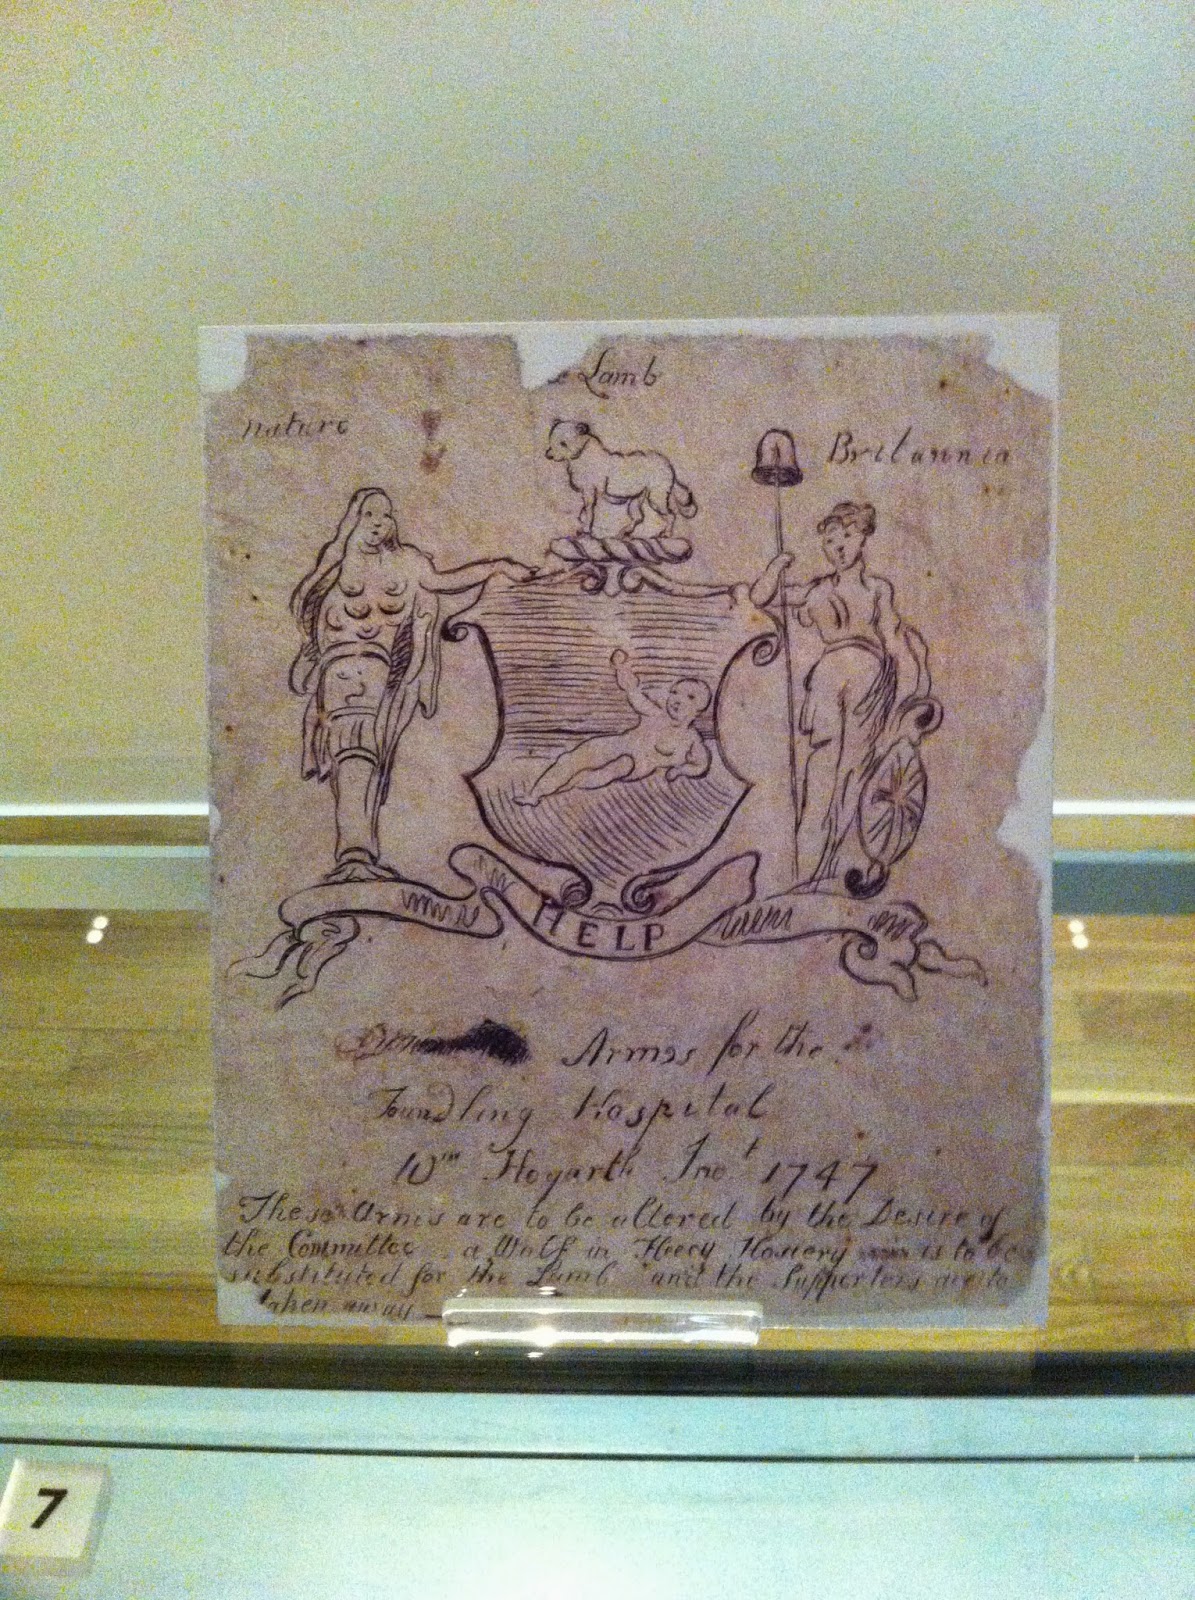 Lamb
nature
Britannia
HELP
Armes for the
Foundling Hospital
Wm Hogarth Invt 1747
These Arms are to be altered by the Desire of
the Committee a Wolf in Fleecy Hosiery is to be
substituted for the Lamb and the Supporters are to
taken away
7